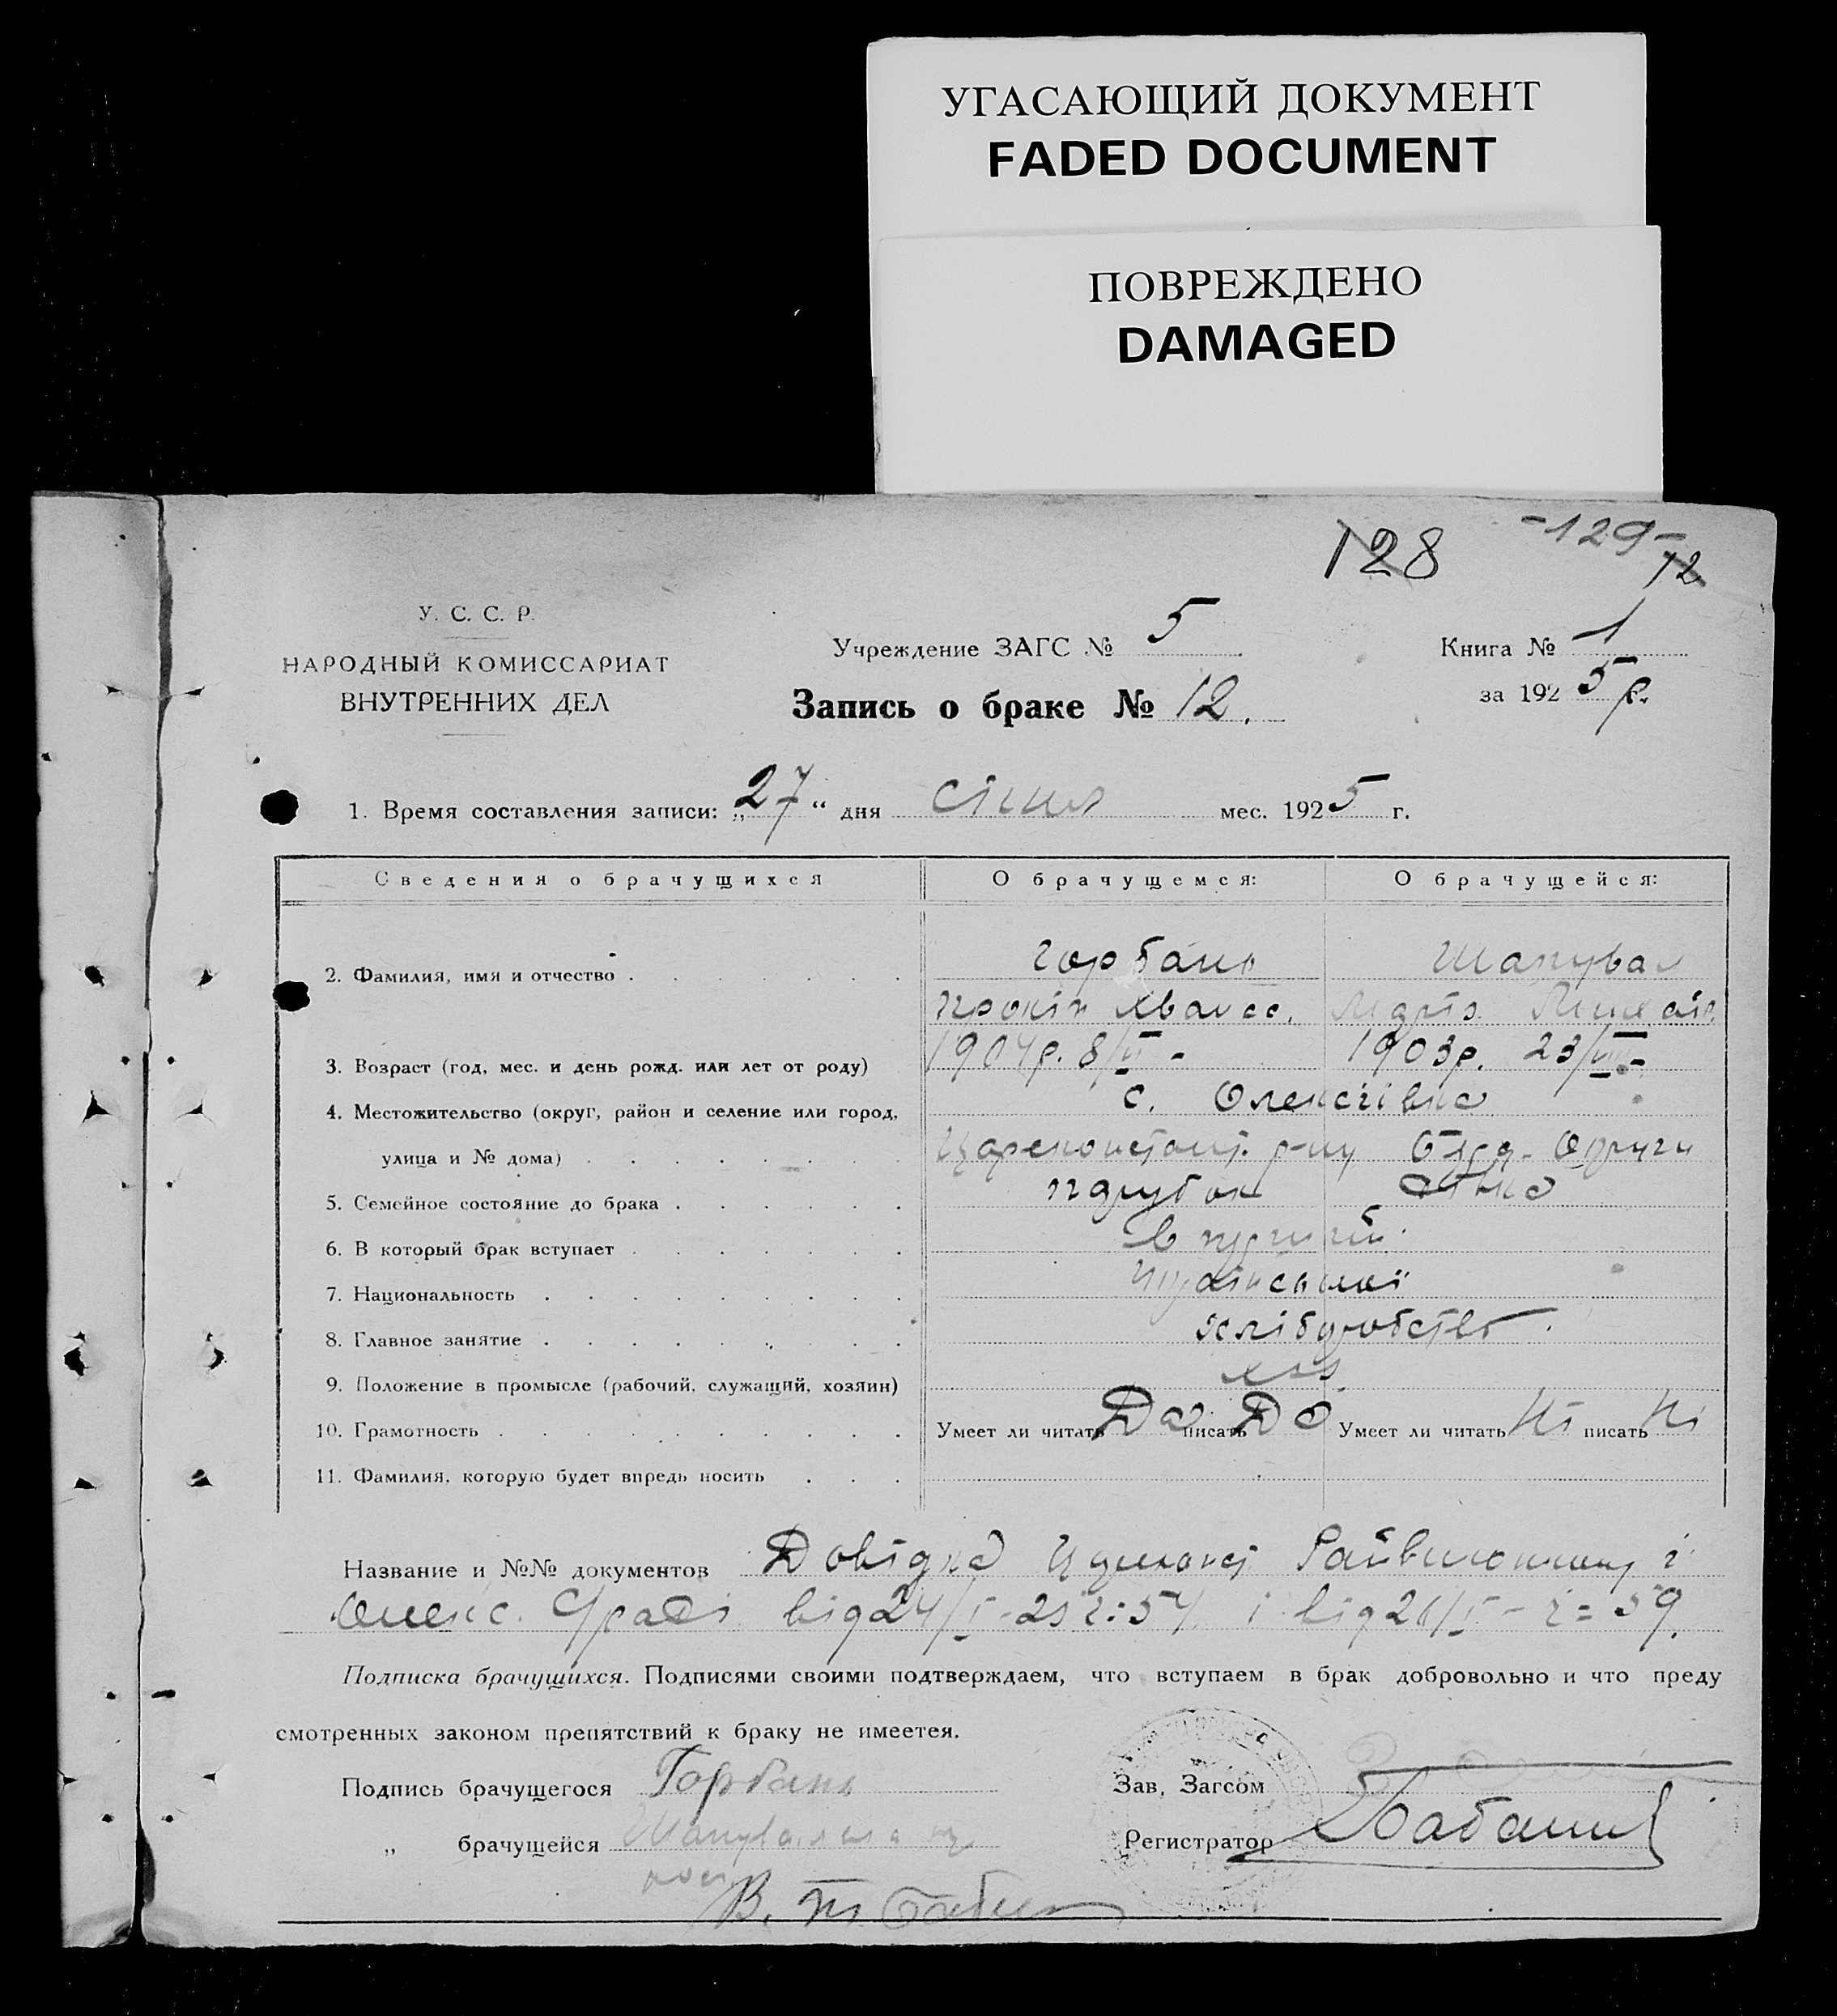 УГАСАЮЩИЙ ДОКУМЕНТ
FADED DOCUMENT
ПОВРЕЖДЕНО
DAMAGED
128 -129- 12
У. С. С. Р.
НАРОДНЫЙ КОМИССАРИАТ
ВНУТРЕННИХ ДЕЛ
Учреждение ЗАГС № 5
Книга № 1
за 1925 р.
Запись о браке № 12.
1. Время составления записи: „27“ дня січня мес. 1925 г.
Сведения о брачущихся О брачущемся: О брачущейся:
2. Фамилия, имя и отчество Горбань Шапувал
Прокіп Хванас. Марія Михай.
3. Возраст (год, мес. и день рожд. или лет от роду) 1904р. 8/VI - 1903р. 23/VIII -
4. Местожительство (округ, район и селение или город, с. Олексіівка
улица и № дома) р-ну Округи
5. Семейное состояние до брака парубок дівка
6. В который брак вступает в перший
7. Национальность Української
8. Главное занятие хліборобство.
9. Положение в промысле (рабочий, служащий, хозяин)
10. Грамотность Умеет ли читать Да писать Да Умеет ли читать Ні писать Ні
11. Фамилия, которую будет впредь носить
Название и №№ документов Довідка Райвиконкому і
Олекс. С/ради від 24/I-25 і від 26/I
Подписка брачущихся. Подписями своими подтверждаем, что вступаем в брак добровольно и что преду
смотренных законом препятствий к браку не имеется.
Подпись брачущегося Горбань
Зав, Загсом
„ брачущейся
Регистратор